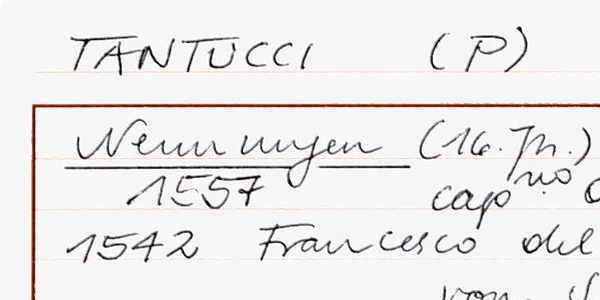 TANTUCCI (P)
Nennungen (16. Jh.)
1557 capno
1542 Francesco del
von